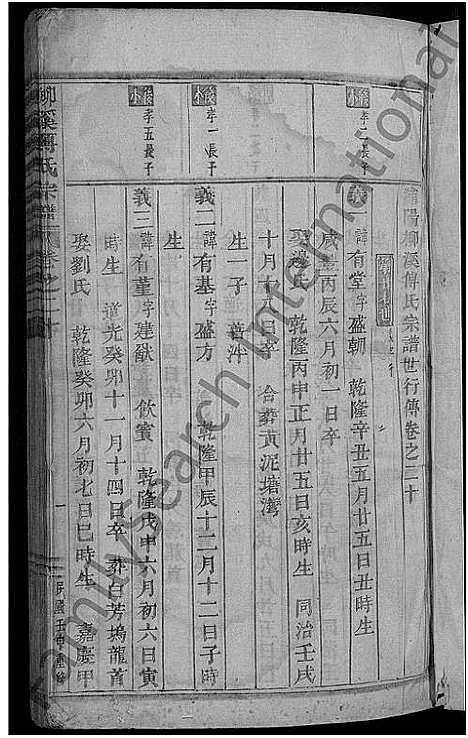 浦陽柳溪傅氏宗譜世行傳卷之三十
孝二長子
義一諱有堂字盛朝 乾隆辛丑五月廿五日丑時生
咸豐丙辰六月初一日卒
娶 氏 乾隆丙申正月廿五日亥時生 同治壬戌
十月十八日卒 合葬黃泥塘灣
生一子
孝一長子
義二諱有基字盛方 乾隆甲辰十二月十二日子時
生
孝五長子
義三諱有董字建猷 飲賓 乾隆戊申六月初六日寅
時生 道光癸卯十一月十四日卒 葬白芳塢龍首
娶劉氏 乾隆癸卯六月初七日巳時生 嘉慶甲
柳溪傅氏宗譜 卷之三十
一
民國壬申重修
Familysearch International